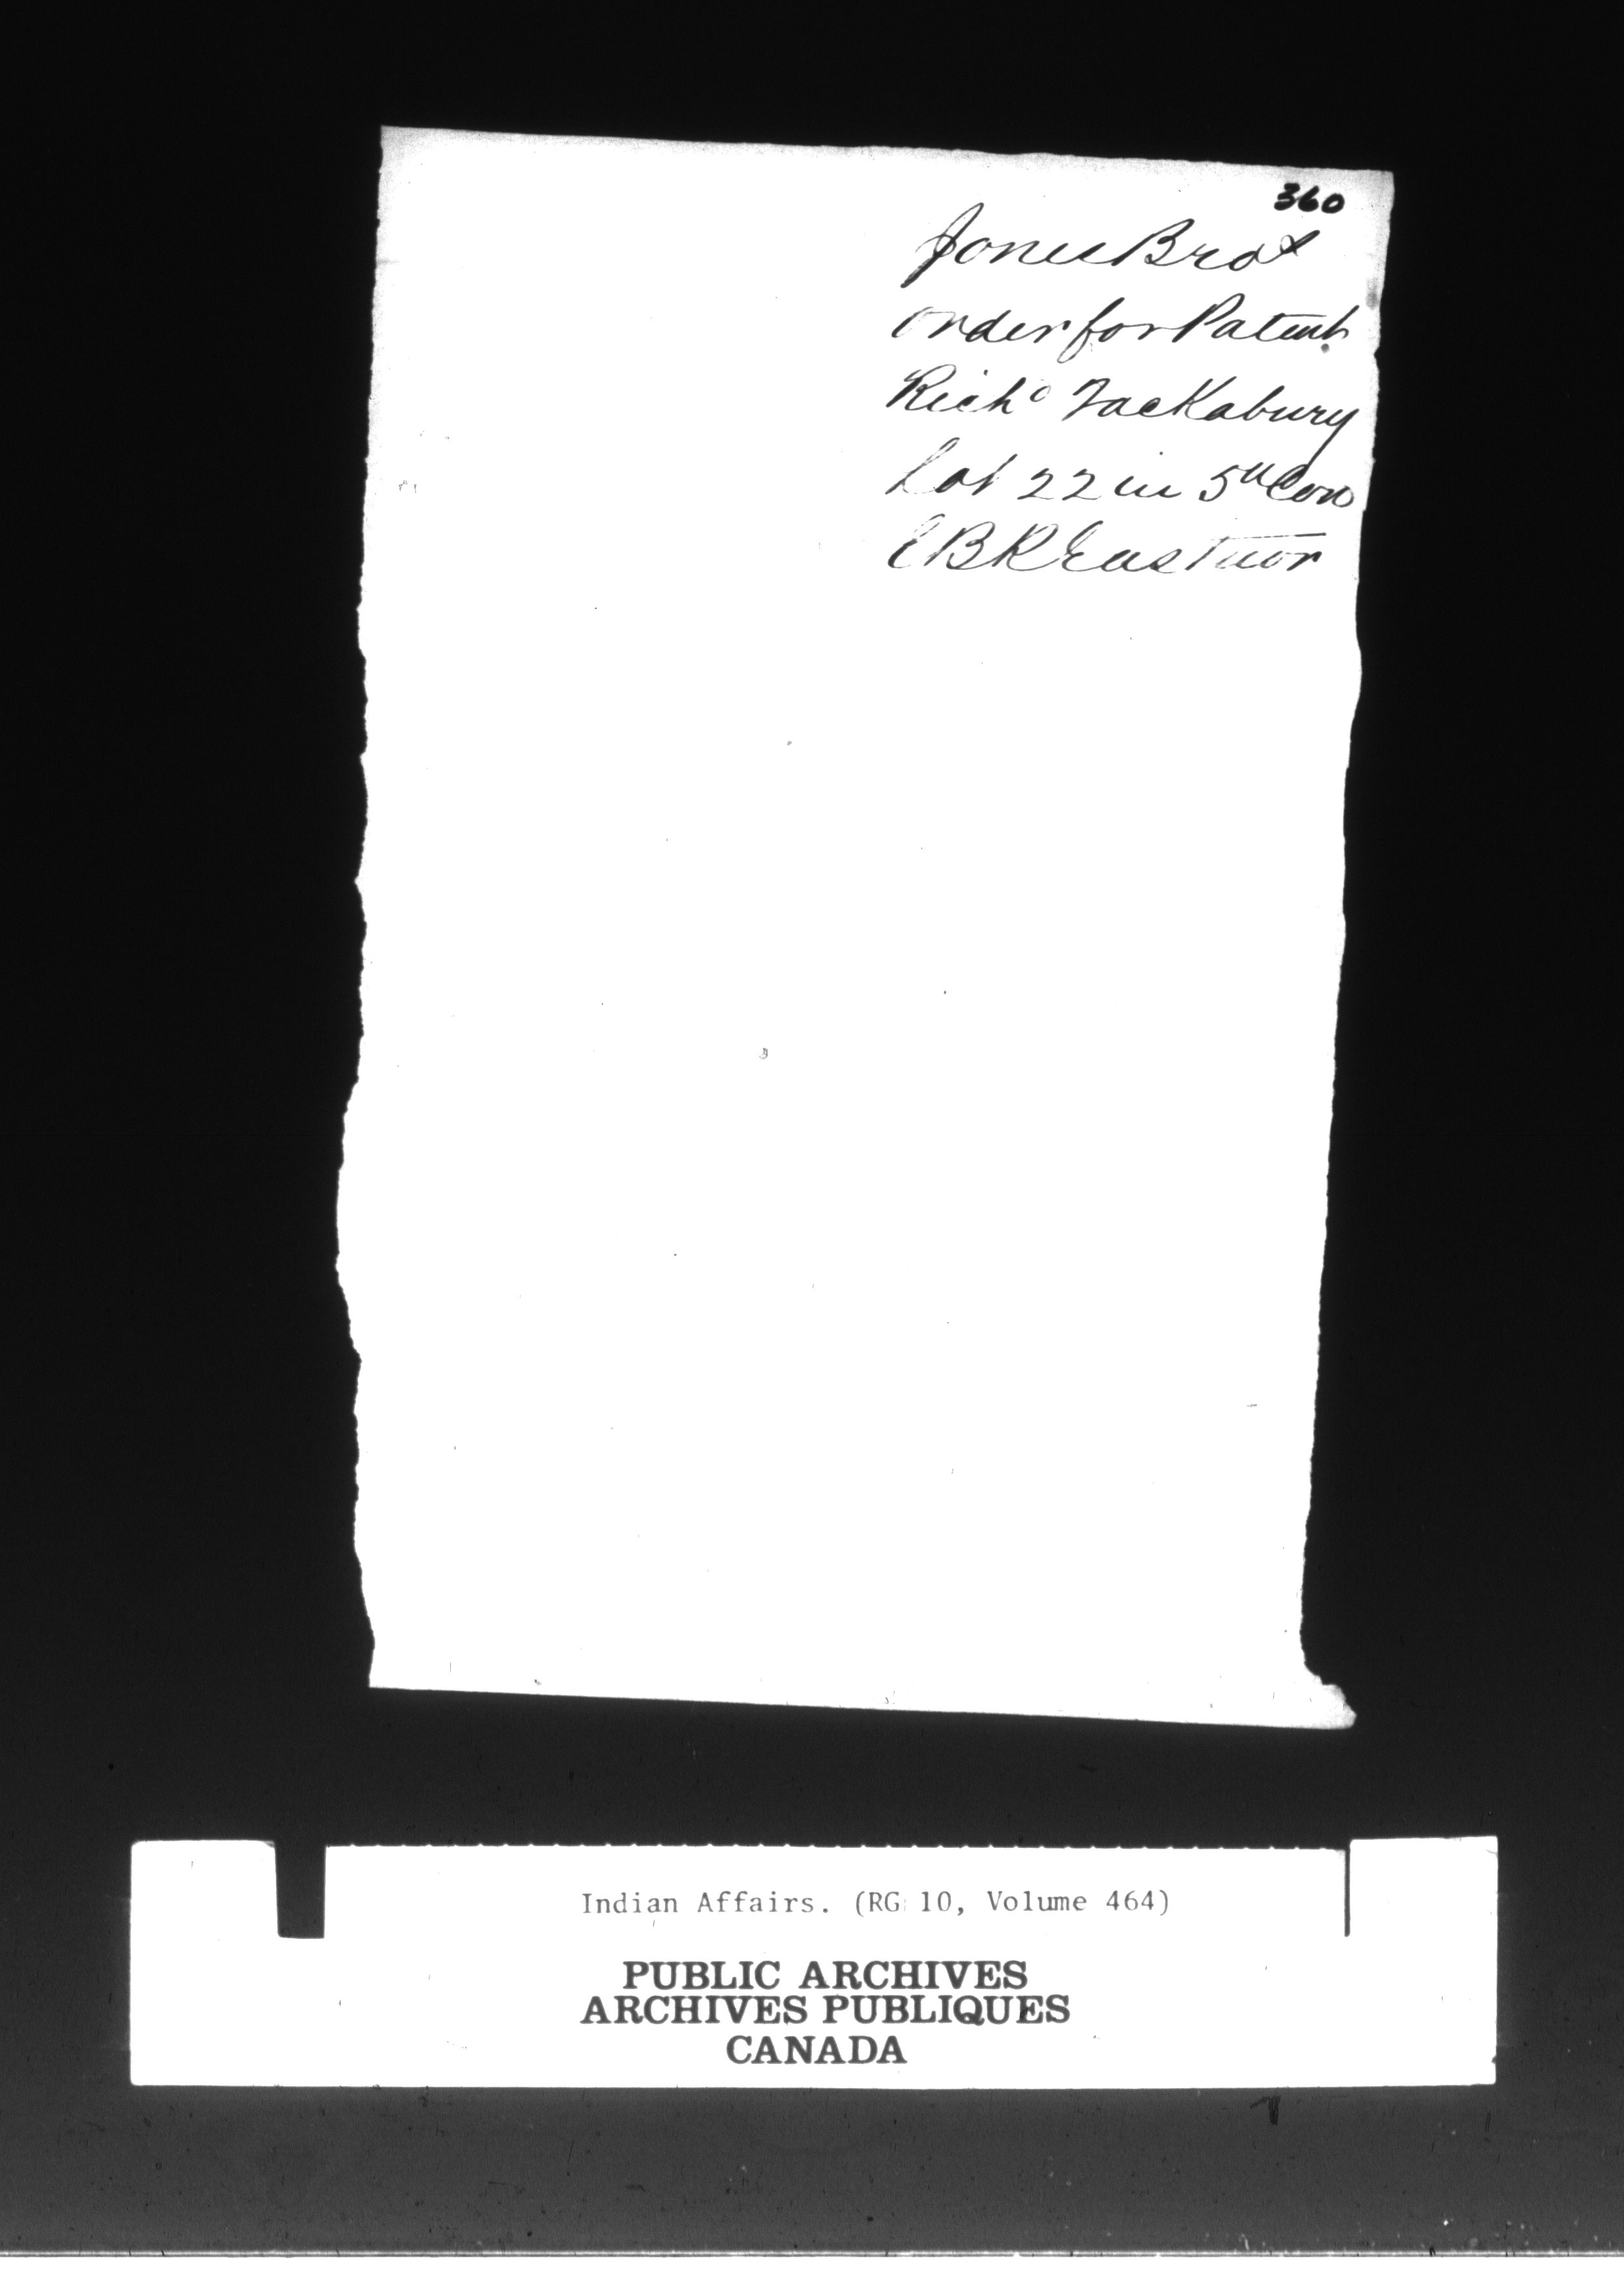 360
Jones Bros
Order for Patent
Rich^d Tackabury
Lot 22 in 5th Con
EBR Eastnor
Indian Affairs. (RG 10, Volume 464)
PUBLIC ARCHIVES
ARCHIVES PUBLIQUES
CANADA